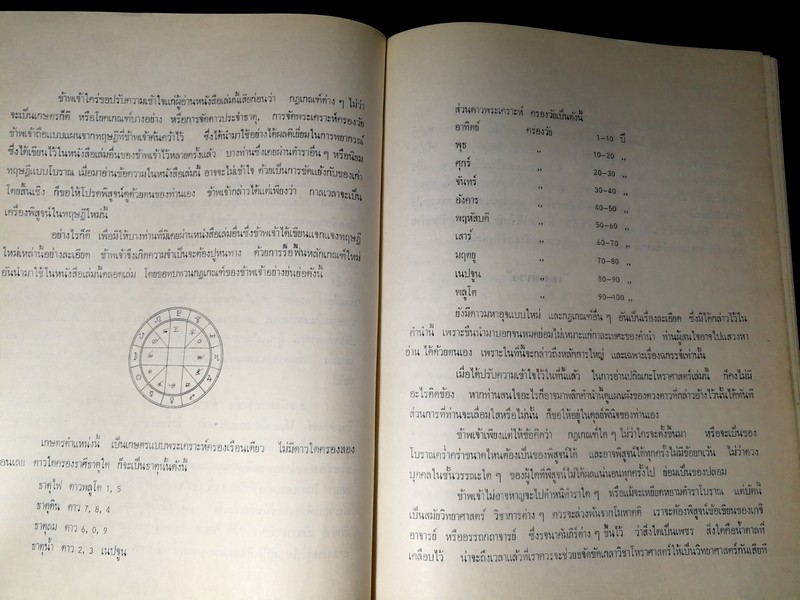 ข้าพเจ้าใคร่ขอปรับความเข้าใจแก่ผู้อ่านหนังสือเล่มนี้เสียก่อนว่า กฎเกณฑ์ต่าง ๆ ไม่ว่า
จะเป็นเกษตรก็ดี หรือโยคเกณฑ์บางอย่าง หรือการจัดดาวประจำธาตุ, การจัดพระเคราะห์ครองวัย
ข้าพเจ้าถือแบบแผนจากทฤษฎีที่ข้าพเจ้าค้นคว้าไว้ ซึ่งได้นำมาใช้อย่างได้ผลดีเยี่ยมในการพยากรณ์
ซึ่งได้เขียนไว้ในหนังสือเล่มอื่นของข้าพเจ้าไว้หลายครั้งแล้ว บางท่านซึ่งเคยผ่านตำราอื่น ๆ หรือนิยม
ทฤษฎีแบบโบราณ เมื่อมาอ่านข้อความในหนังสือเล่มนี้ อาจจะไม่เข้าใจ ด้วยเป็นการขัดแย้งกับของเก่า
โดยสิ้นเชิง ก็ขอให้โปรดพิสูจน์ดูด้วยตนของท่านเอง ข้าพเจ้ากล่าวได้แต่เพียงว่า กาลเวลาจะเป็น
เครื่องพิสูจน์ในทฤษฎีใหม่นี้
อย่างไรก็ดี เพื่อมิให้บางท่านที่มิเคยผ่านหนังสือเล่มอื่นซึ่งข้าพเจ้าได้เขียนแจกแจงทฤษฎี
ใหม่เหล่านี้อย่างละเอียด ข้าพเจ้าจึงเกิดความจำเป็นจะต้องปูหนทาง ด้วยการรื้อฟื้นหลักเกณฑ์ใหม่
อันนำมาใช้ในหนังสือเล่มนี้ตลอดเล่ม โดยขอทบทวนกฎเกณฑ์ของข้าพเจ้าอย่างย่นย่อดังนี้
เกษตรตำแหน่งนี้ เป็นเกษตรแบบพระเคราะห์ครองเรือนเดียว ไม่มีดาวใดครองสอง
อนเลย ดาวใดครองราศีธาตุใด ก็จะเป็นธาตุนั้นดังนี้
ธาตุไฟ ดาวพลูโต 1, 5
ธาตุดิน ดาว 7, 8, 4
ธาตุลม ดาว 6, 0, 9
ธาตุน้ำ ดาว 2, 3 เนปจูน
ส่วนดาวพระเคราะห์ ครองวัยเป็นดังนี้
อาทิตย์ ครองวัย 1–10 ปี
พุธ ,, 10–20 ,,
ศุกร์ ,, 20–30 ,,
จันทร์ ,, 30–40 ,,
อังคาร ,, 40–50 ,,
พฤหัสบดี ,, 50–60 ,,
เสาร์ ,, 60–70 ,,
มฤตยู ,, 70–80 ,,
เนปจูน ,, 80–90 ,,
พลูโต ,, 90–100 ,,
ยังมีดาวมหาอุจแบบใหม่ และกฎเกณฑ์อื่น ๆ อันเป็นเรื่องละเอียด ซึ่งมิได้กล่าวไว้ใน
คำนำนี้ เพราะขืนนำมาบอกจนหมดย่อมไม่เหมาะแก่กาละเทศะของคำนำ ท่านผู้สนใจอาจไปแสวงหา
อ่าน ได้ด้วยตนเอง เพราะในที่นี้จะกล่าวถึงหลักการใหญ่ และเฉพาะเรื่องฉกรรจ์เท่านั้น
เมื่อได้ปรับความเข้าใจไว้ในที่นี้แล้ว ในการอ่านปกิณกะโหราศาสตร์เล่มนี้ ก็คงไม่มี
อะไรติดข้อง หากท่านสนใจอะไรก็อาจมาพลิกคำนำนี้ดูแผนผังของดวงดาวที่กล่าวอ้างไว้นั้นได้ทันที
ส่วนการที่ท่านจะเลื่อมใสหรือไม่นั้น ก็ขอให้อยู่ในดุลย์พินิจของท่านเอง
ข้าพเจ้าเพียงแต่ให้ข้อคิดว่า กฎเกณฑ์ใด ๆ ไม่ว่าใครจะตั้งขึ้นมา หรือจะเป็นของ
โบราณคร่ำคร่าขนาดไหนต้องเป็นของพิสูจน์ได้ และอาจพิสูจน์ได้ทุกครั้งไม่มีข้อยกเว้น ไม่ว่าดวง
บุคคลในชั้นวรรณะใด ๆ ของผู้ใดที่พิสูจน์ไม่ได้ผลแน่นอนทุกครั้งไป ย่อมเป็นของปลอม
ข้าพเจ้าไม่อาจหาญจะไปตำหนิตำราใด ๆ หรือแม้จะเหยียดหยามตำราโบราณ แต่บัดนี้
เป็นสมัยวิทยาศาสตร์ วิชาการต่าง ๆ ควรจะล่วงพ้นจากโมหาคติ เราจะต้องพิสูจน์ข้อเขียนของเกจิ
อาจารย์ หรืออรรถกถาจารย์ ซึ่งรจนาคัมภีร์ต่าง ๆ ขึ้นไว้ ว่าสิ่งใดเป็นเพชร สิ่งใดคือน้ำตาลที่
เคลือบไว้ น่าจะถึงเวลาแล้วที่เราควรจะช่วยขจัดขัดเกลาวิชาโหราศาสตร์ให้เป็นวิทยาศาสตร์กันเสียที